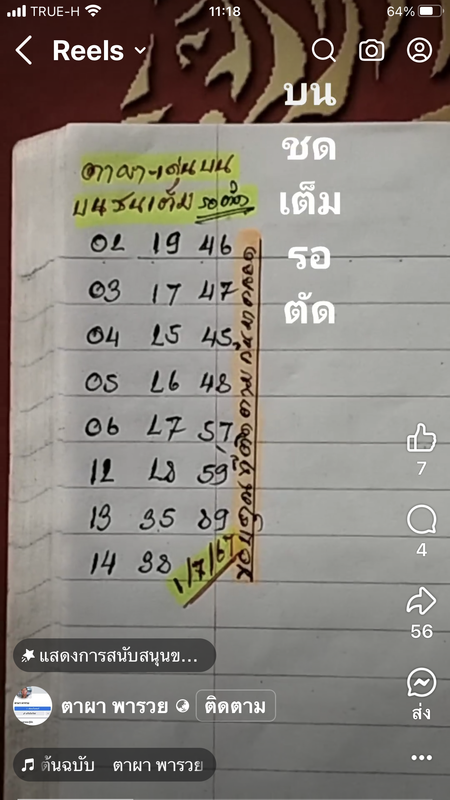 TRUE-H 11:18 64%
Reels
บน
ชด
เต็ม
รอ
ตัด
ตาผา-เด่นบน
บนชนเต็ม รอตัด
02 19 46
03 17 47
04 25 45
05 26 48
06 27 57
12 28 59
13 35 89
14 38
1/7/67
7
4
56
ส่ง
แสดงการสนับสนุนข...
ตาผา พารวย
ติดตาม
ต้นฉบับ ตาผา พารวย